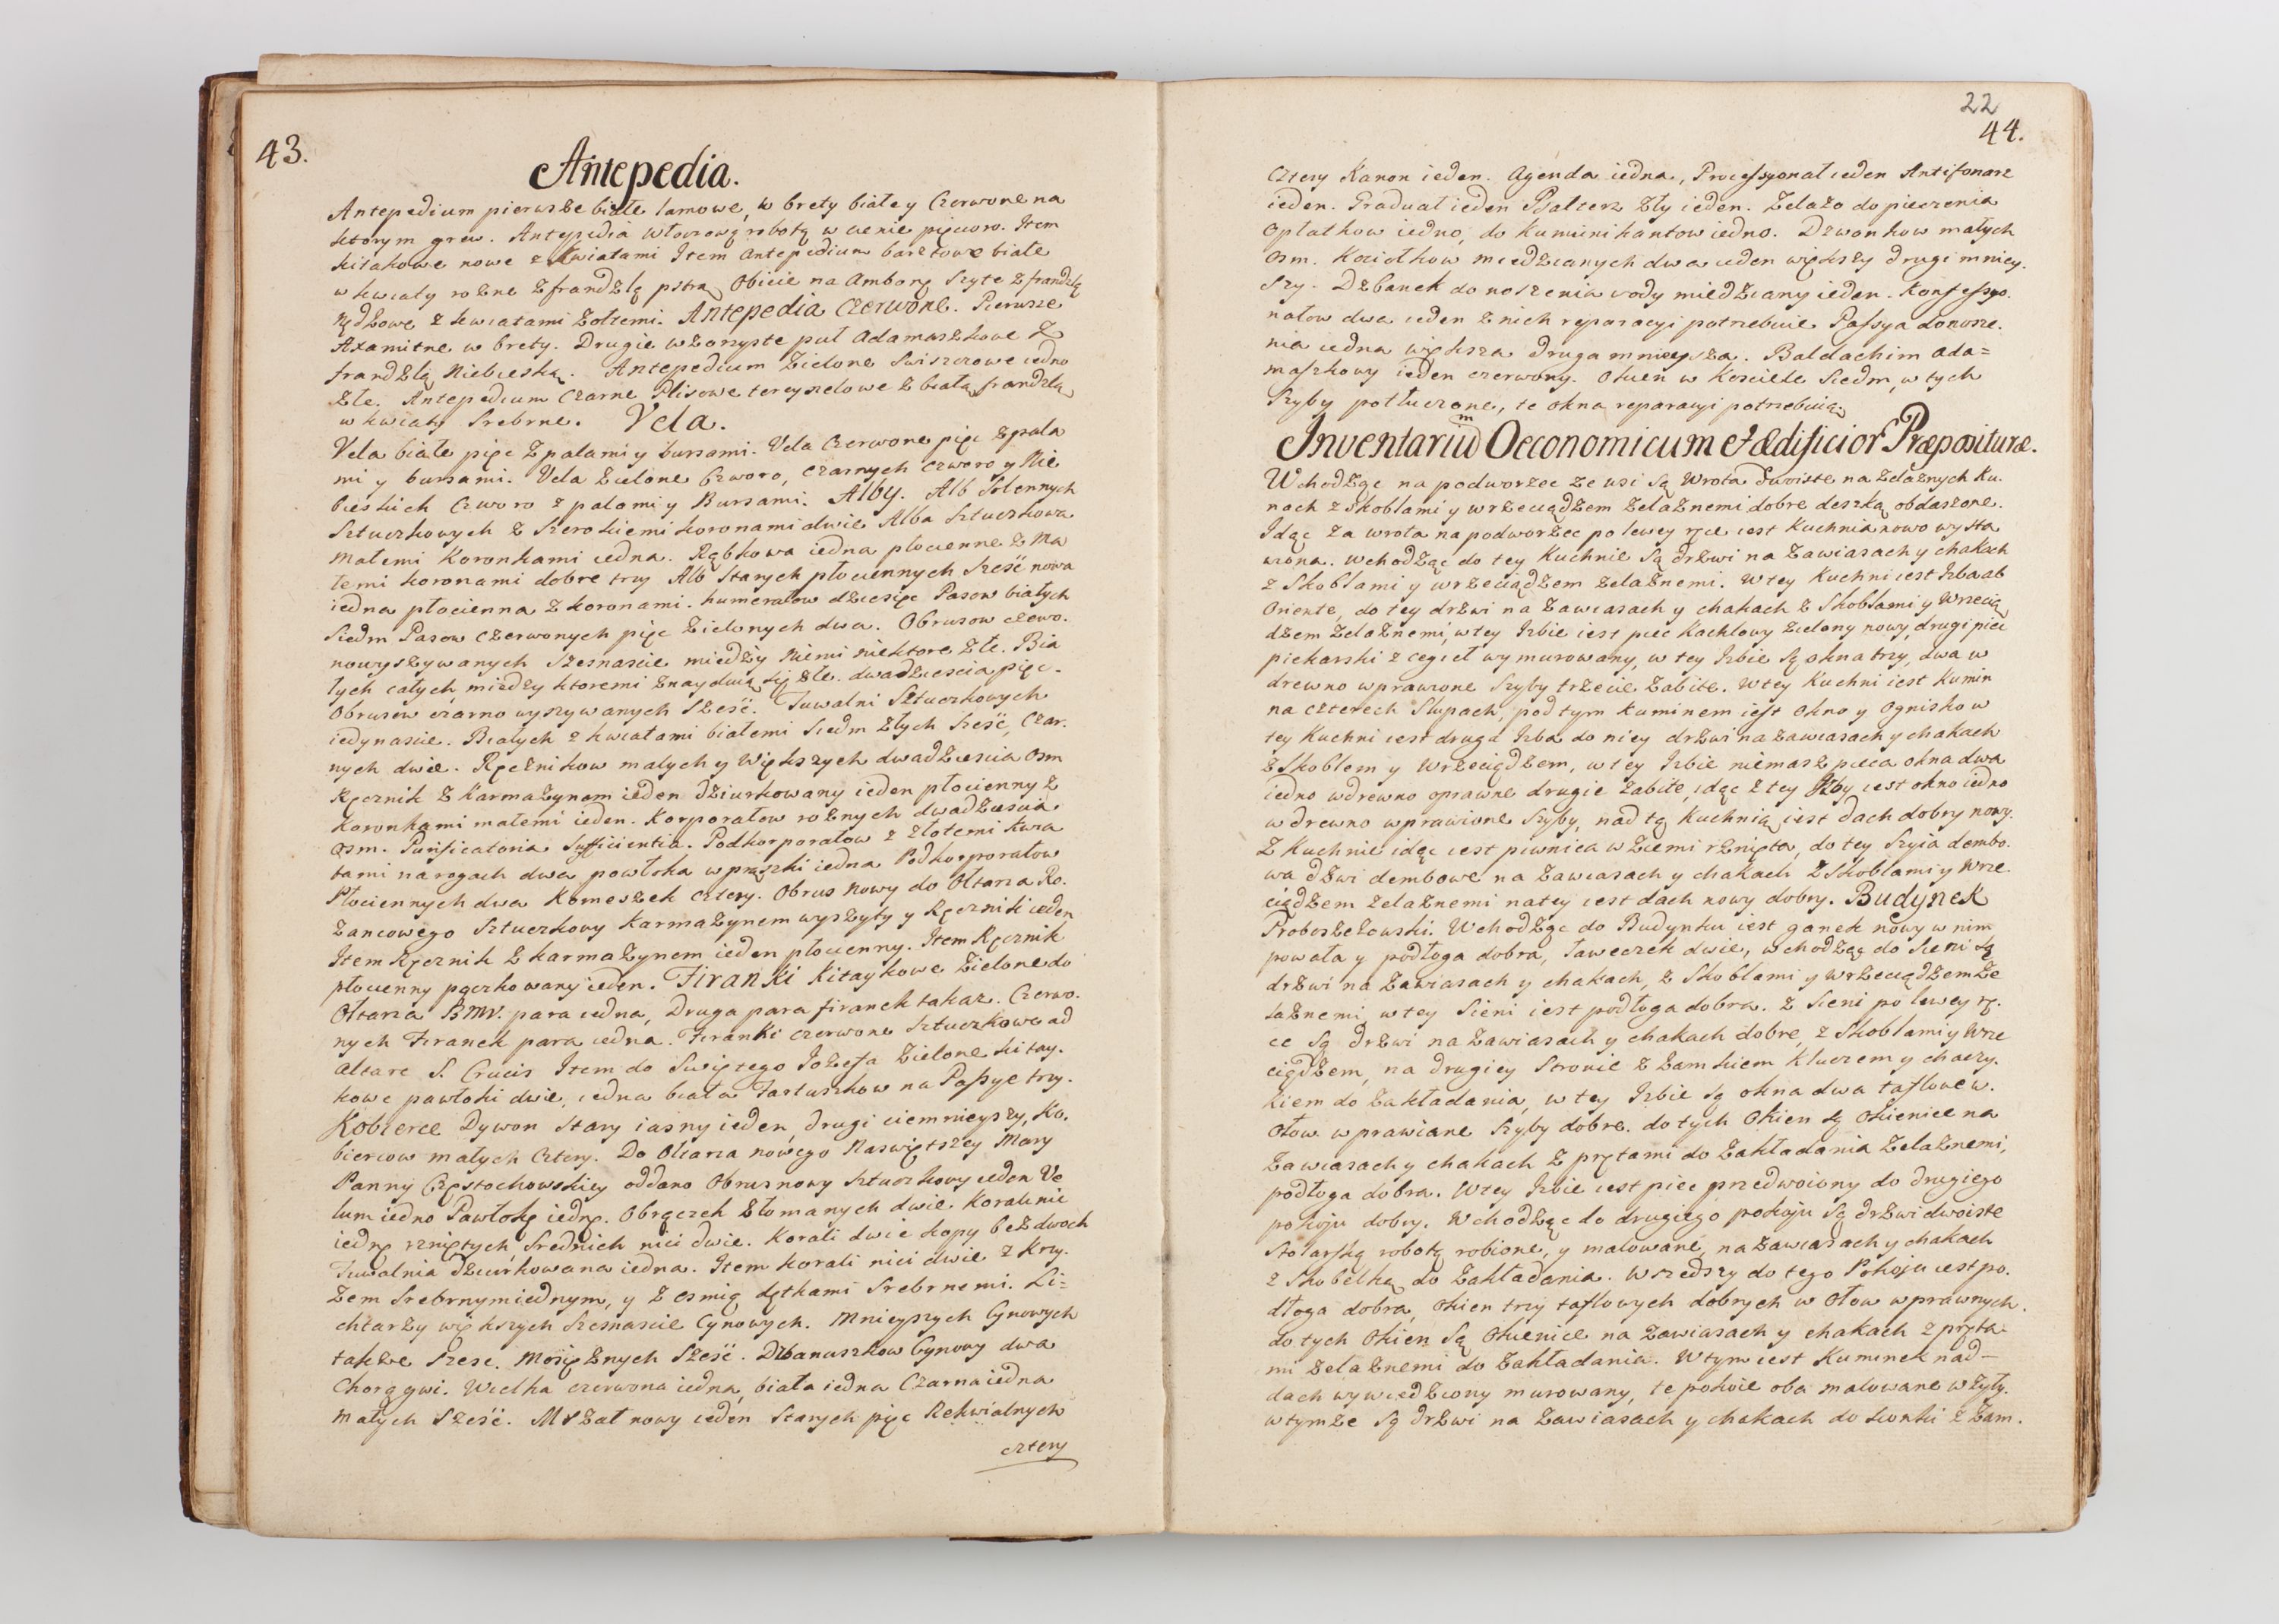 43.
Antepedia.
Antepedium pierwsze białe lamowe, w brety białe y Czerwone na
ktorym grew. Antepedia włoczową robotą w cenie pięcioro. Item
kitakowe nowe z Kwiatami Item antepedium barstowe białe
w kwiaty rożne z frandzlą pstrą Obicie na Ambonę szyte z frandzlą
z kwiatami żołtemi. Antepedia Czerwone. Pierwsze
Axamitne w brety. Drugie wzorzyste puł Adamaszkowe z
frandzlą Niebieską. Antepedium Zielone iedno
złe. Antepedium Czarne Plisowe tercynelowe z białą frandzlą
w kwiaty Srebrne. Vela.
Vela białe pięc z palami y bursami. Vela Czerwone pięc z pala
mi y bursami. Vela Zielone Czworo, czarnych czworo y Nie
bieskich Czworo z palami y Bursami. Alby. Alb Solennych
Sztuczkowych z Szerokiemi koronami dwie Alba Sztuczkowa
małemi Koronkami iedna. Rąbkowa iedna płocienne z Ma
łemi koronami dobre trzy Alb Starych płociennych Sześć nowa
iedna płocienna z koronami. humerałow dziesięc Pasow białych
Siedm Pasow Czerwonych pięc Zielonych dwa. Obrusow czewo.
nowyszywanych Szesnascie miedży niemi niektore złe. Bia
łych całych, między ktoremi znayduią się złe. dwadziescia pięc.
Obrusow czarno wyszywanych Sześć. Tuwalni Sztuczkowych
iedynascie. Białych z kwiatami białemi Siedm złych Sześć, Czar.
nych dwie. Ręcznikow małych y Większych dwadziescia osm
Ręcznik z Karmazynem ieden dziurkowany ieden płocienny z
Koronkami małemi ieden. Korporałow rożnych dwadziescia
osm. Purificatoria Sufficientia. Podkorporałow z złotemi kwia
tami na rogach dwa powłoka w prążki iedna Podkorporałow
Płociennych dwa Komeszek cztery. Obrus nowy do Ołtarza Ro.
zancowego Sztuczkowy Karmazynem wyszyty y Ręcznik ieden
Item Ręcznik z karmazynem ieden płocienny. Item Ręcznik
płocienny pączkowany ieden. Firanki kitaykowe Zielone do
Ołtarza BMV. para iedna, Druga para firanek takaz. Czerwo.
nych Firanek para iedna. Firanki czerwone Sztuczkowe ad
altare S. Crucis Item do Swiętego Jozefa Zielone kitay.
kowe pawłoki dwie, iedna biała Fartuszkow na Passye trzy.
Kobierce Dywon Stary iasny ieden, drugi ciemnieyszy, Ko.
biercow małych Cztery. Do Ołtarza nowego Naswiętszey Mary
Panny Częstochowskiey oddano Obrus nowy Sztuczkowy ieden Ve
lum iedno Pawłokę iednę. Obrączek złomanych dwie Korali nic
iednę rzniętych, Srednich nici dwie. Korali dwie kopy bez dwoch
Tuwalnia dziurkowana iedna. Item korali nici dwie z krzy.
żem Srebrnym iednym, y z osmią dętkami Srebrnemi. Li=
chtarzy większych Szesnascie Cynowych. Mnieyszych Cynowych
także Szesc. Mosiężnych Sześć. Dzbanuszkow Cynowy dwa
Chorągwi. Wielka czerwona iedna, biała iedna Czarna iedna
małych Sześć. Mszał nowy ieden Starych pięc Rekwialnych
cztery
22
44.
Cztery Kanon ieden. Agenda iedna, Processyonał ieden Antifonarz
ieden. Graduał ieden Psalterz zły ieden. Zelazo do pieczenia
Opłatkow iedno, do Kumunikantow iedno. Dzwonkow małych
osm. Kociołkow miedzianych dwa ieden większy drugi mniey.
szy. Dzbanek do noszenia wody miedziany ieden. Konfessyo.
nałow dwa ieden z nich reparacyi potrzebuie Passya do nosze.
nia iedna większa druga mnieysza. Baldachim ada=
maszkowy ieden czerwony. Okien w Kosciele Siedm, w tych
Szyby potłuczone, te okna reparacyi potrzebuią
Inventariũm Oeconomicum et Ædificior Præpositurae.
Wchodząc na podworzec ze wsi są Wrota dwoiste na żelaznych Ku.
nach z Skoblami y wrzeciądzem żelaznemi dobre deszką obdaszone.
Idąc za wrota na podworzec po lewey ręce iest Kuchnia nowo wysta
wiona. wchodząc do tey Kuchnie są drzwi na zawiasach y chakach
z Skoblami y wrzeciądzem żelaznemi. W tey Kuchni iest Izba ab
Oriente, do tey drzwi na zawiasach y chakach z Skoblami y Wrzecią
dzem żelaznemi, w tey Izbie iest piec Kachlowy zielony nowy, drugi piec
piekarski z cegieł wymurowany, w tey Izbie są okna trzy, dwa w
drewno wprawione Szyby trzecie zabite. W tey Kuchni iest Kumin
na czterech Słupach, pod tym kuminem iest okno y ognisko w
tey Kuchni iest druga Izba do niey drzwi na zawiasach y chakach
z Skoblem y Wrzeciądzem, w tey Izbie niemasz pieca okna dwa
iedno w drewno oprawne drugie zabite, idąc z tey Izby iest okno iedno
w drewno wprawione Szyby, nad tą Kuchnią iest dach dobry nowy.
Z Kuchnie idąc iest piwnica w ziemi rznięta, do tey Szyia dembo.
wa dzwi dembowe na zawiasach y chakach z Skoblami y Wrze.
ciądzem żelaznemi na tey iest dach nowy dobry. Budynek
Proboszczowski. Wchodząc do Budynku iest ganek nowy w nim
powała y podłoga dobra, ławeczek dwie, wchodząc do Sieni są
drzwi na zawiasach y chakach, z Skoblami y wrzeciądzem że
laznemi, w tey Sieni iest podłoga dobra. z Sieni po lewey rę.
ce są drzwi na zawiasach y chakach dobre, z Skoblami y Wrze
ciądzem, na drugiey Stronie z zamkiem kluczem y chaczy.
kiem do zakładania, w tey Izbie są okna dwa taflowe w.
ołow wprawiane Szyby dobre. do tych Okien są okienice na
zawiasach y chakach z prętami do zakładania żelaznemi,
podłoga dobra. W tey Izbie iest piec przedwoiony do drugiego
pokoju dobry. Wchodząc do drugiego pokoju są drzwi dwoiste
Stolarską robotą robione, y malowane, na zawiasach y chakach
z Skobelką do zakładania. wszedszy do tego Pokoju iest po.
dłoga dobra, okien trzy taflowych dobrych w ołow wprawnych.
do tych Okien są okienice na zawiasach y chakach z pręta
mi żelaznemi do zakładania. W tym iest Kuminek nad—
dach wywiedziony murowany, te pokoie oba malowane
w tymże są drzwi na zawiasach y chakach do z zam.